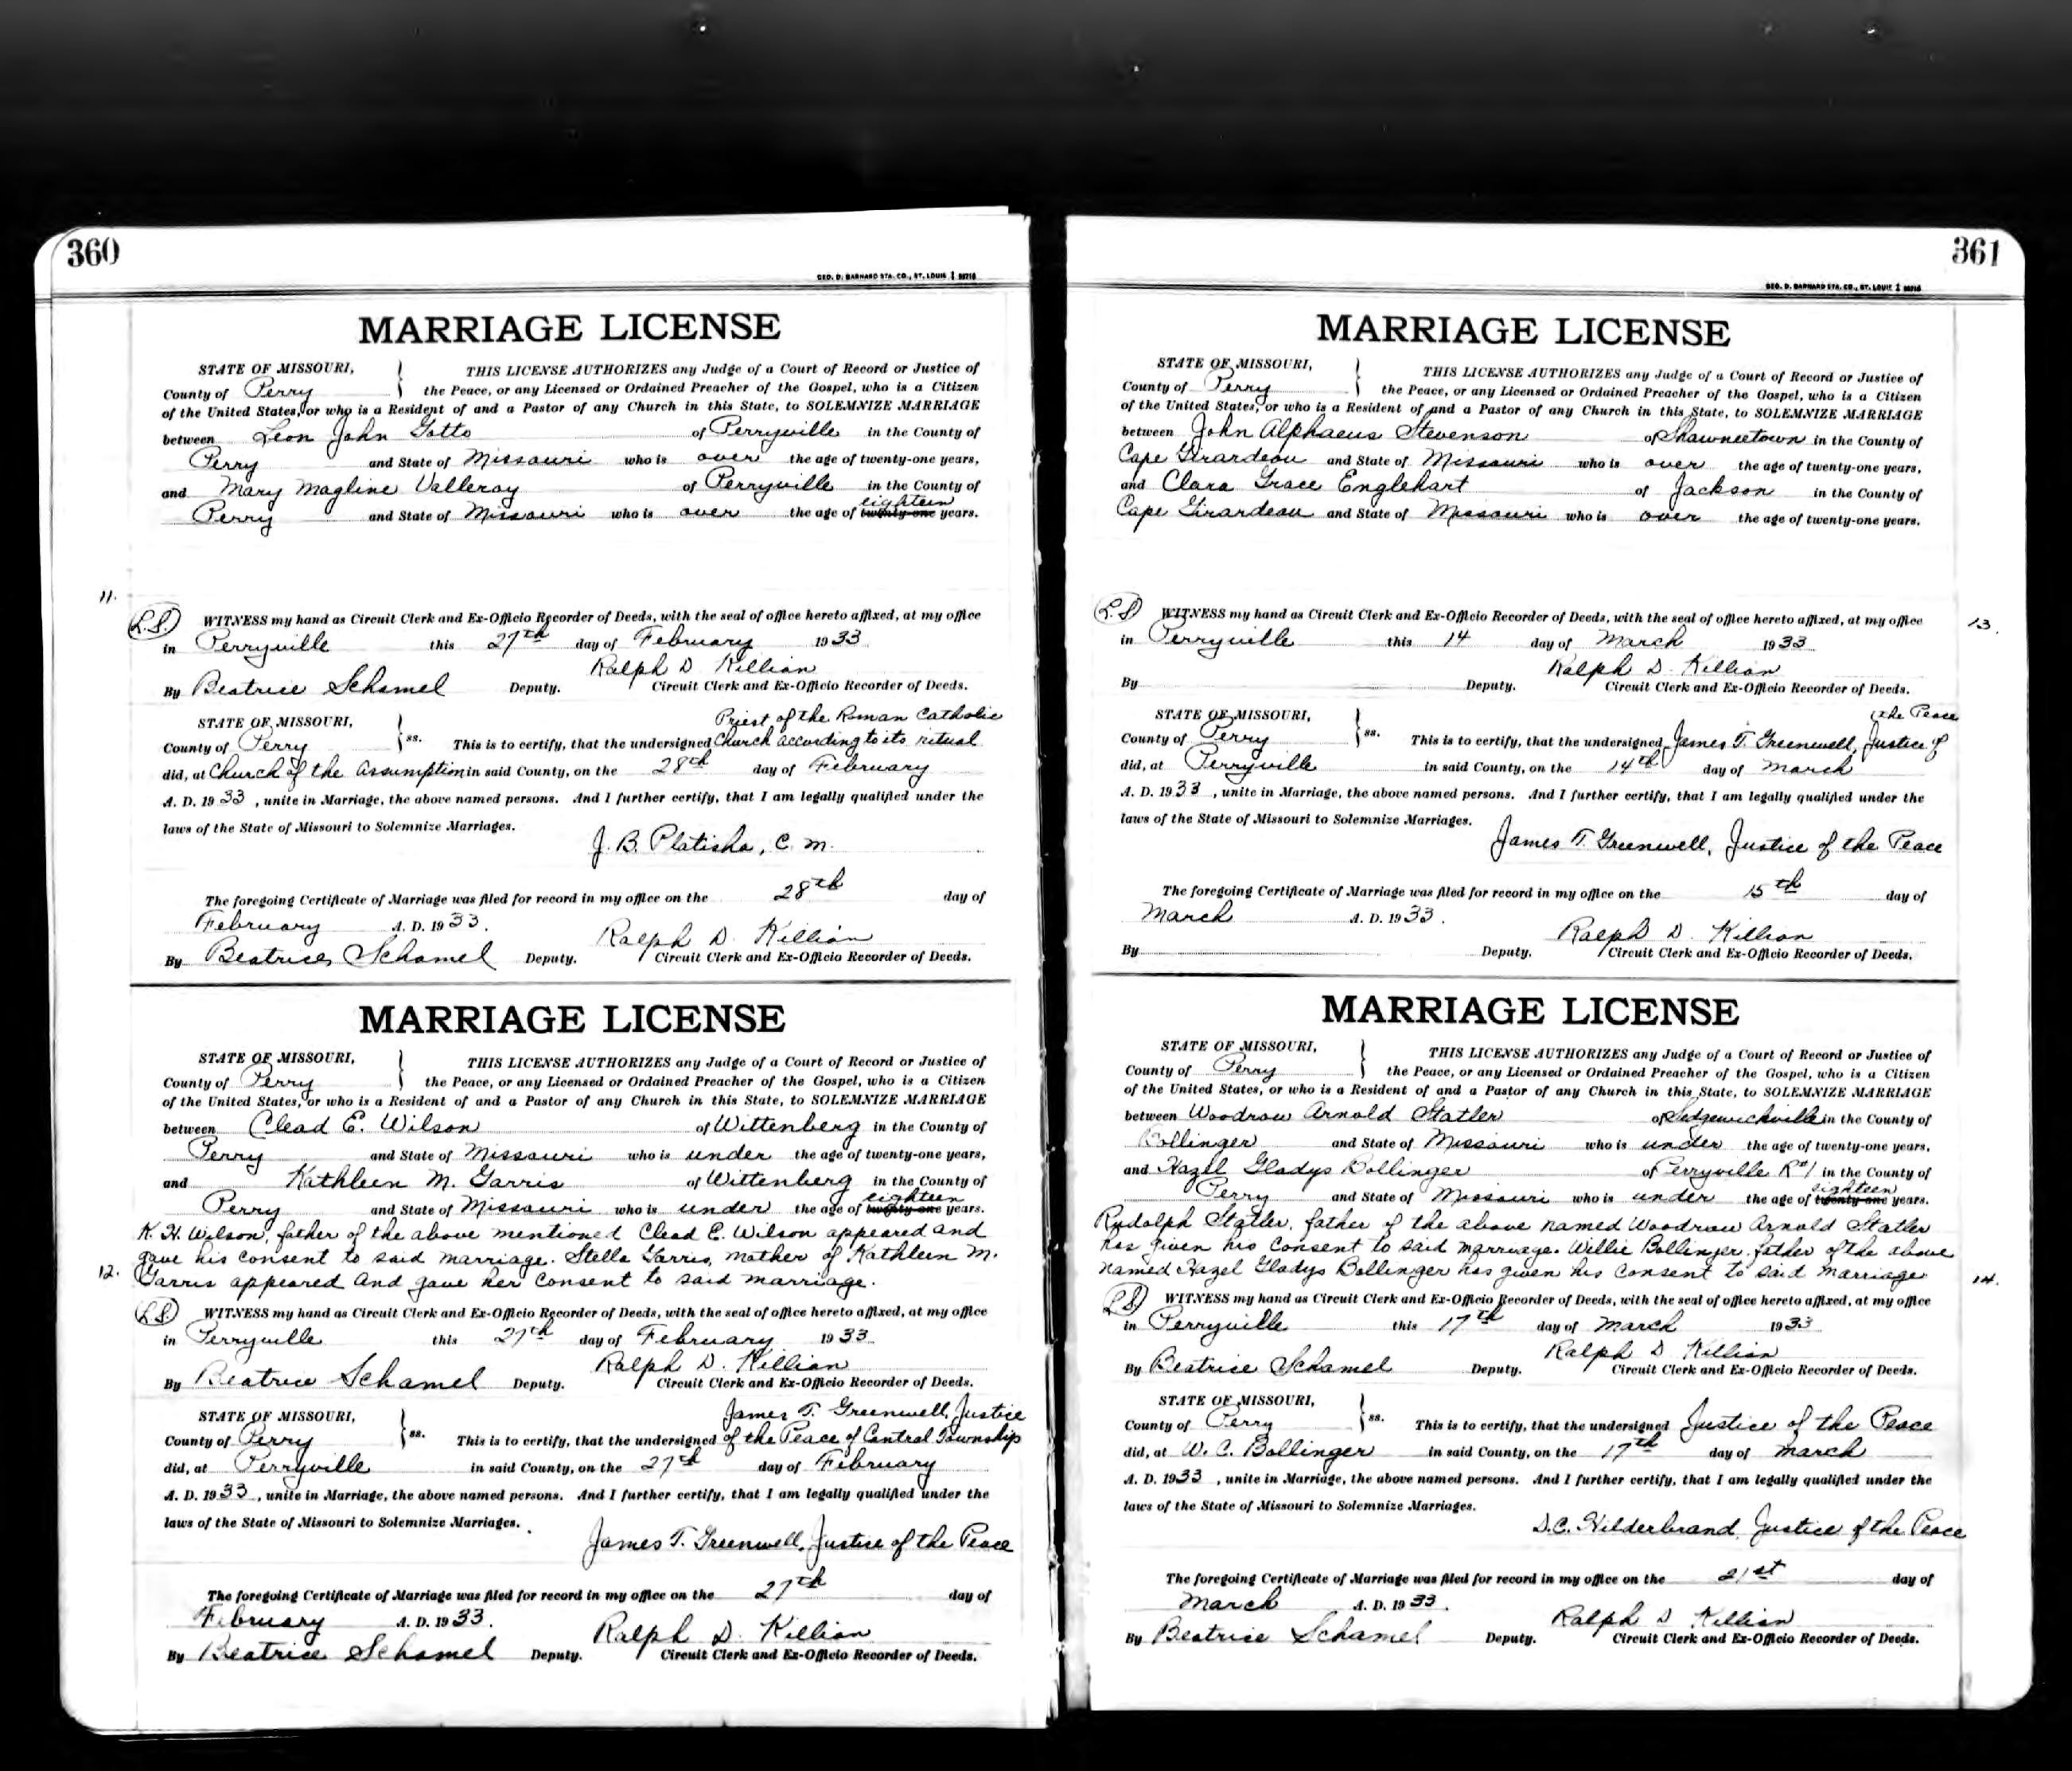 360
GEO. D. BARNARD STA. CO., ST. LOUIS
MARRIAGE LICENSE
STATE OF MISSOURI,
THIS LICENSE AUTHORIZES any Judge of a Court of Record or Justice of
County of Perry the Peace, or any Licensed or Ordained Preacher of the Gospel, who is a Citizen
of the United States, or who is a Resident of and a Pastor of any Church in this State, to SOLEMNIZE MARRIAGE
between Leon John Gotto of Perryville in the County of
Perry and State of Missouri who is over the age of twenty-one years,
and Mary Magline Valleroy of Perryville in the County of
eighteen
Perry and State of Missouri who is over the age of twenty-one years.
11.
L.S. WITNESS my hand as Circuit Clerk and Ex-Officio Recorder of Deeds, with the seal of office hereto affixed, at my office
in Perryville this 27th day of February 1933
Ralph D. Killian
By Beatrice Schamel Deputy. Circuit Clerk and Ex-Officio Recorder of Deeds.
Priest of the Roman Catholic
STATE OF MISSOURI,
County of Perry ss. This is to certify, that the undersigned Church according to its ritual
did, at Church of the Assumption in said County, on the 28th day of February
A. D. 1933, unite in Marriage, the above named persons. And I further certify, that I am legally qualified under the
laws of the State of Missouri to Solemnize Marriages.
J. B. Platisha, C. M.
The foregoing Certificate of Marriage was filed for record in my office on the 28th day of
February A. D. 1933.
Ralph D. Killian
By Beatrice Schamel Deputy. Circuit Clerk and Ex-Officio Recorder of Deeds.
MARRIAGE LICENSE
STATE OF MISSOURI,
THIS LICENSE AUTHORIZES any Judge of a Court of Record or Justice of
County of Perry the Peace, or any Licensed or Ordained Preacher of the Gospel, who is a Citizen
of the United States, or who is a Resident of and a Pastor of any Church in this State, to SOLEMNIZE MARRIAGE
between Clead E. Wilson of Wittenberg in the County of
Perry and State of Missouri who is under the age of twenty-one years,
and Kathleen M. Garris of Wittenberg in the County of
eighteen
Perry and State of Missouri who is under the age of twenty-one years.
K. H. Wilson, father of the above mentioned Clead E. Wilson appeared and
gave his consent to said marriage. Stella Garris, mother of Kathleen M.
12. Garris appeared and gave her consent to said marriage.
L.S. WITNESS my hand as Circuit Clerk and Ex-Officio Recorder of Deeds, with the seal of office hereto affixed, at my office
in Perryville this 27th day of February 1933
Ralph D. Killian
By Beatrice Schamel Deputy. Circuit Clerk and Ex-Officio Recorder of Deeds.
James T. Greenwell, Justice
STATE OF MISSOURI,
County of Perry ss. This is to certify, that the undersigned of the Peace of Central Township
did, at Perryville in said County, on the 27th day of February
A. D. 1933, unite in Marriage, the above named persons. And I further certify, that I am legally qualified under the
laws of the State of Missouri to Solemnize Marriages.
James T. Greenwell, Justice of the Peace
The foregoing Certificate of Marriage was filed for record in my office on the 27th day of
February A. D. 1933.
Ralph D. Killian
By Beatrice Schamel Deputy. Circuit Clerk and Ex-Officio Recorder of Deeds.
361
GEO. D. BARNARD STA. CO., ST. LOUIS
MARRIAGE LICENSE
STATE OF MISSOURI,
THIS LICENSE AUTHORIZES any Judge of a Court of Record or Justice of
County of Perry the Peace, or any Licensed or Ordained Preacher of the Gospel, who is a Citizen
of the United States, or who is a Resident of and a Pastor of any Church in this State, to SOLEMNIZE MARRIAGE
between John Alphaeus Stevenson of Shawneetown in the County of
Cape Girardeau and State of Missouri who is over the age of twenty-one years,
and Clara Grace Englehart of Jackson in the County of
Cape Girardeau and State of Missouri who is over the age of twenty-one years.
L.S. WITNESS my hand as Circuit Clerk and Ex-Officio Recorder of Deeds, with the seal of office hereto affixed, at my office
13.
in Perryville this 14 day of March 1933
Ralph D. Killian
By Deputy. Circuit Clerk and Ex-Officio Recorder of Deeds.
the Peace
STATE OF MISSOURI,
County of Perry ss. This is to certify, that the undersigned James T. Greenwell, Justice of
did, at Perryville in said County, on the 14th day of March
A. D. 1933, unite in Marriage, the above named persons. And I further certify, that I am legally qualified under the
laws of the State of Missouri to Solemnize Marriages.
James T. Greenwell, Justice of the Peace
The foregoing Certificate of Marriage was filed for record in my office on the 15th day of
March A. D. 1933.
Ralph D. Killian
By Deputy. Circuit Clerk and Ex-Officio Recorder of Deeds.
MARRIAGE LICENSE
STATE OF MISSOURI,
THIS LICENSE AUTHORIZES any Judge of a Court of Record or Justice of
County of Perry the Peace, or any Licensed or Ordained Preacher of the Gospel, who is a Citizen
of the United States, or who is a Resident of and a Pastor of any Church in this State, to SOLEMNIZE MARRIAGE
between Woodrow Arnold Statler of Sedgewickville in the County of
Bollinger and State of Missouri who is under the age of twenty-one years,
and Hazel Gladys Bollinger of Perryville R#1 in the County of
eighteen
Perry and State of Missouri who is under the age of twenty-one years.
Rudolph Statler, father of the above named Woodrow Arnold Statler
has given his consent to said marriage. Willie Bollinger father of the above
named Hazel Gladys Bollinger has given his consent to said marriage
14.
L.S. WITNESS my hand as Circuit Clerk and Ex-Officio Recorder of Deeds, with the seal of office hereto affixed, at my office
in Perryville this 17th day of March 1933
Ralph D Killian
By Beatrice Schamel Deputy. Circuit Clerk and Ex-Officio Recorder of Deeds.
STATE OF MISSOURI,
County of Perry ss. This is to certify, that the undersigned Justice of the Peace
did, at W. C. Bollinger in said County, on the 17th day of March
A. D. 1933, unite in Marriage, the above named persons. And I further certify, that I am legally qualified under the
laws of the State of Missouri to Solemnize Marriages.
D.C. Hilderbrand, Justice of the Peace
The foregoing Certificate of Marriage was filed for record in my office on the 21st day of
March A. D. 1933.
Ralph D Killian
By Beatrice Schamel Deputy. Circuit Clerk and Ex-Officio Recorder of Deeds.